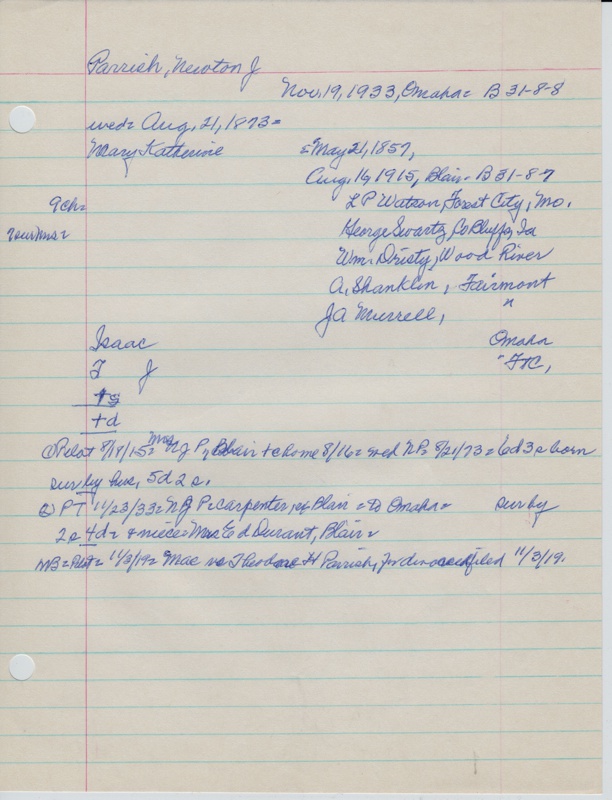 Parrish, Newton J
Nov. 19, 1933, Omaha = B 31-8-8
wed = Aug. 21, 1873 =
Mary Katherine = May 21, 1857,
Aug. 16, 1915, Blair - B 31-8-7
9ch = L P Watson, Forest City, Mo.
George Swartz, Co Bluffs, Ia
Wm. Dristy, Wood River
A. Shanklin, Fairmont
J A Murrell, "
Isaac Omaha
T J "
+s
+d
① Pilot 8/18/15 = Mrs N J P, Blair + @ home 8/16 = wed NP = 8/21/73 = 6d 3s born
sur by hus, 5d 2s.
② PT 11/23/33 = N J P = carpenter, of Blair = to Omaha = sur by
2s 4d = & niece = Mrs Ed Durant, Blair =
11/3/19 = Mae vs Theodore H Parrish, for divorce filed 11/3/19.